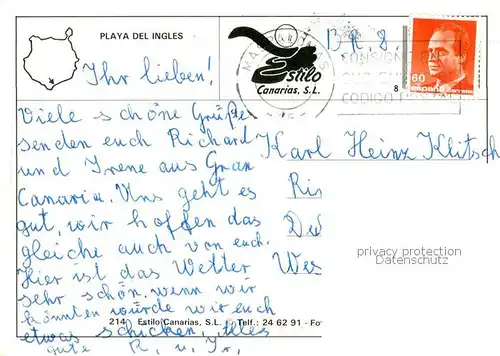 PLAYA DEL INGLES
B.R.8.
Ihr lieben!
MAS
Estilo
Canarias, S.L.
CONSIGNE
CODIGO
60
españa correos
8
Viele schöne Grüße
senden euch Richard
und Irene aus Gran
Canaria. Uns geht es
gut, wir hoffen das
gleiche auch von euch.
Hier ist das Wetter
sehr schön. wenn wir
könnten würde wir euch
etwas schicken, Alles
gute R. u. Ir.
Karl Heinz Klitsch
Ris
Wes
privacy protection
Datenschutz
214 Estilo Canarias, S.L. Telf.: 24 62 91 - Fo